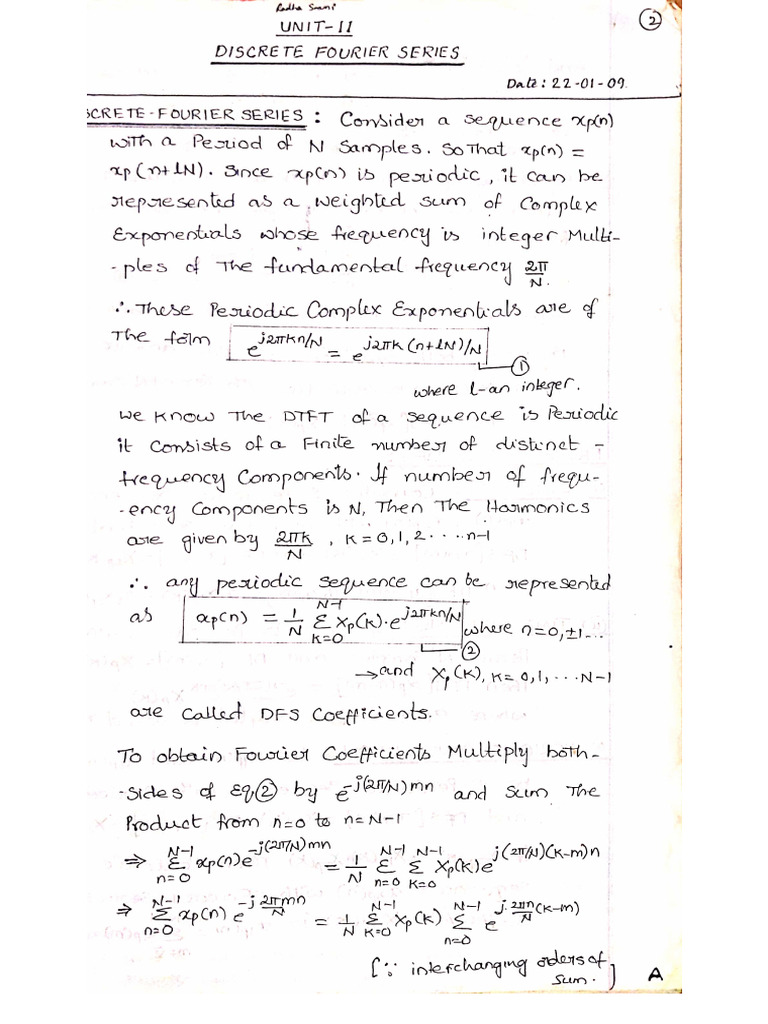 Radha Swami
UNIT-II
②
DISCRETE FOURIER SERIES
Date: 22-01-09.
SCRETE-FOURIER SERIES : Consider a sequence xp(n)
with a Period of N Samples. So That xp(n) =
xp(n+lN). Since xp(n) is periodic, it can be
represented as a weighted sum of Complex
Exponentials whose frequency is integer Multi-
-ples of The fundamental frequency 2π/N.
∴ These Periodic Complex Exponentials are of
The form e^{j2πkn/N} = e^{j2πk(n+lN)/N}
①
where l-an integer.
We know The DTFT of a sequence is Periodic
it Consists of a Finite number of distinct -
frequency Components. If number of frequ-
-ency Components is N, Then The Harmonics
are given by 2πk/N , k=0,1,2....n-1
∴ any periodic sequence can be represented
as xp(n) = 1/N Σ_{k=0}^{N-1} Xp(k).e^{j2πkn/N} where n=0,±1...
②
→and Xp(k), k=0,1,...N-1
are called DFS Coefficients.
To obtain Fourier Coefficients Multiply both-
-sides of Eq② by e^{-j(2π/N)mn} and Sum The
Product from n=0 to n=N-1
⇒ Σ_{n=0}^{N-1} xp(n)e^{-j(2π/N)mn} = 1/N Σ_{n=0}^{N-1} Σ_{k=0}^{N-1} Xp(k)e^{j(2π/N)(k-m)n}
⇒ Σ_{n=0}^{N-1} xp(n) e^{-j2πmn/N} = 1/N Σ_{k=0}^{N-1} Xp(k) Σ_{n=0}^{N-1} e^{j.2πn/N(k-m)}
[∵ interchanging orders of
sum.] A